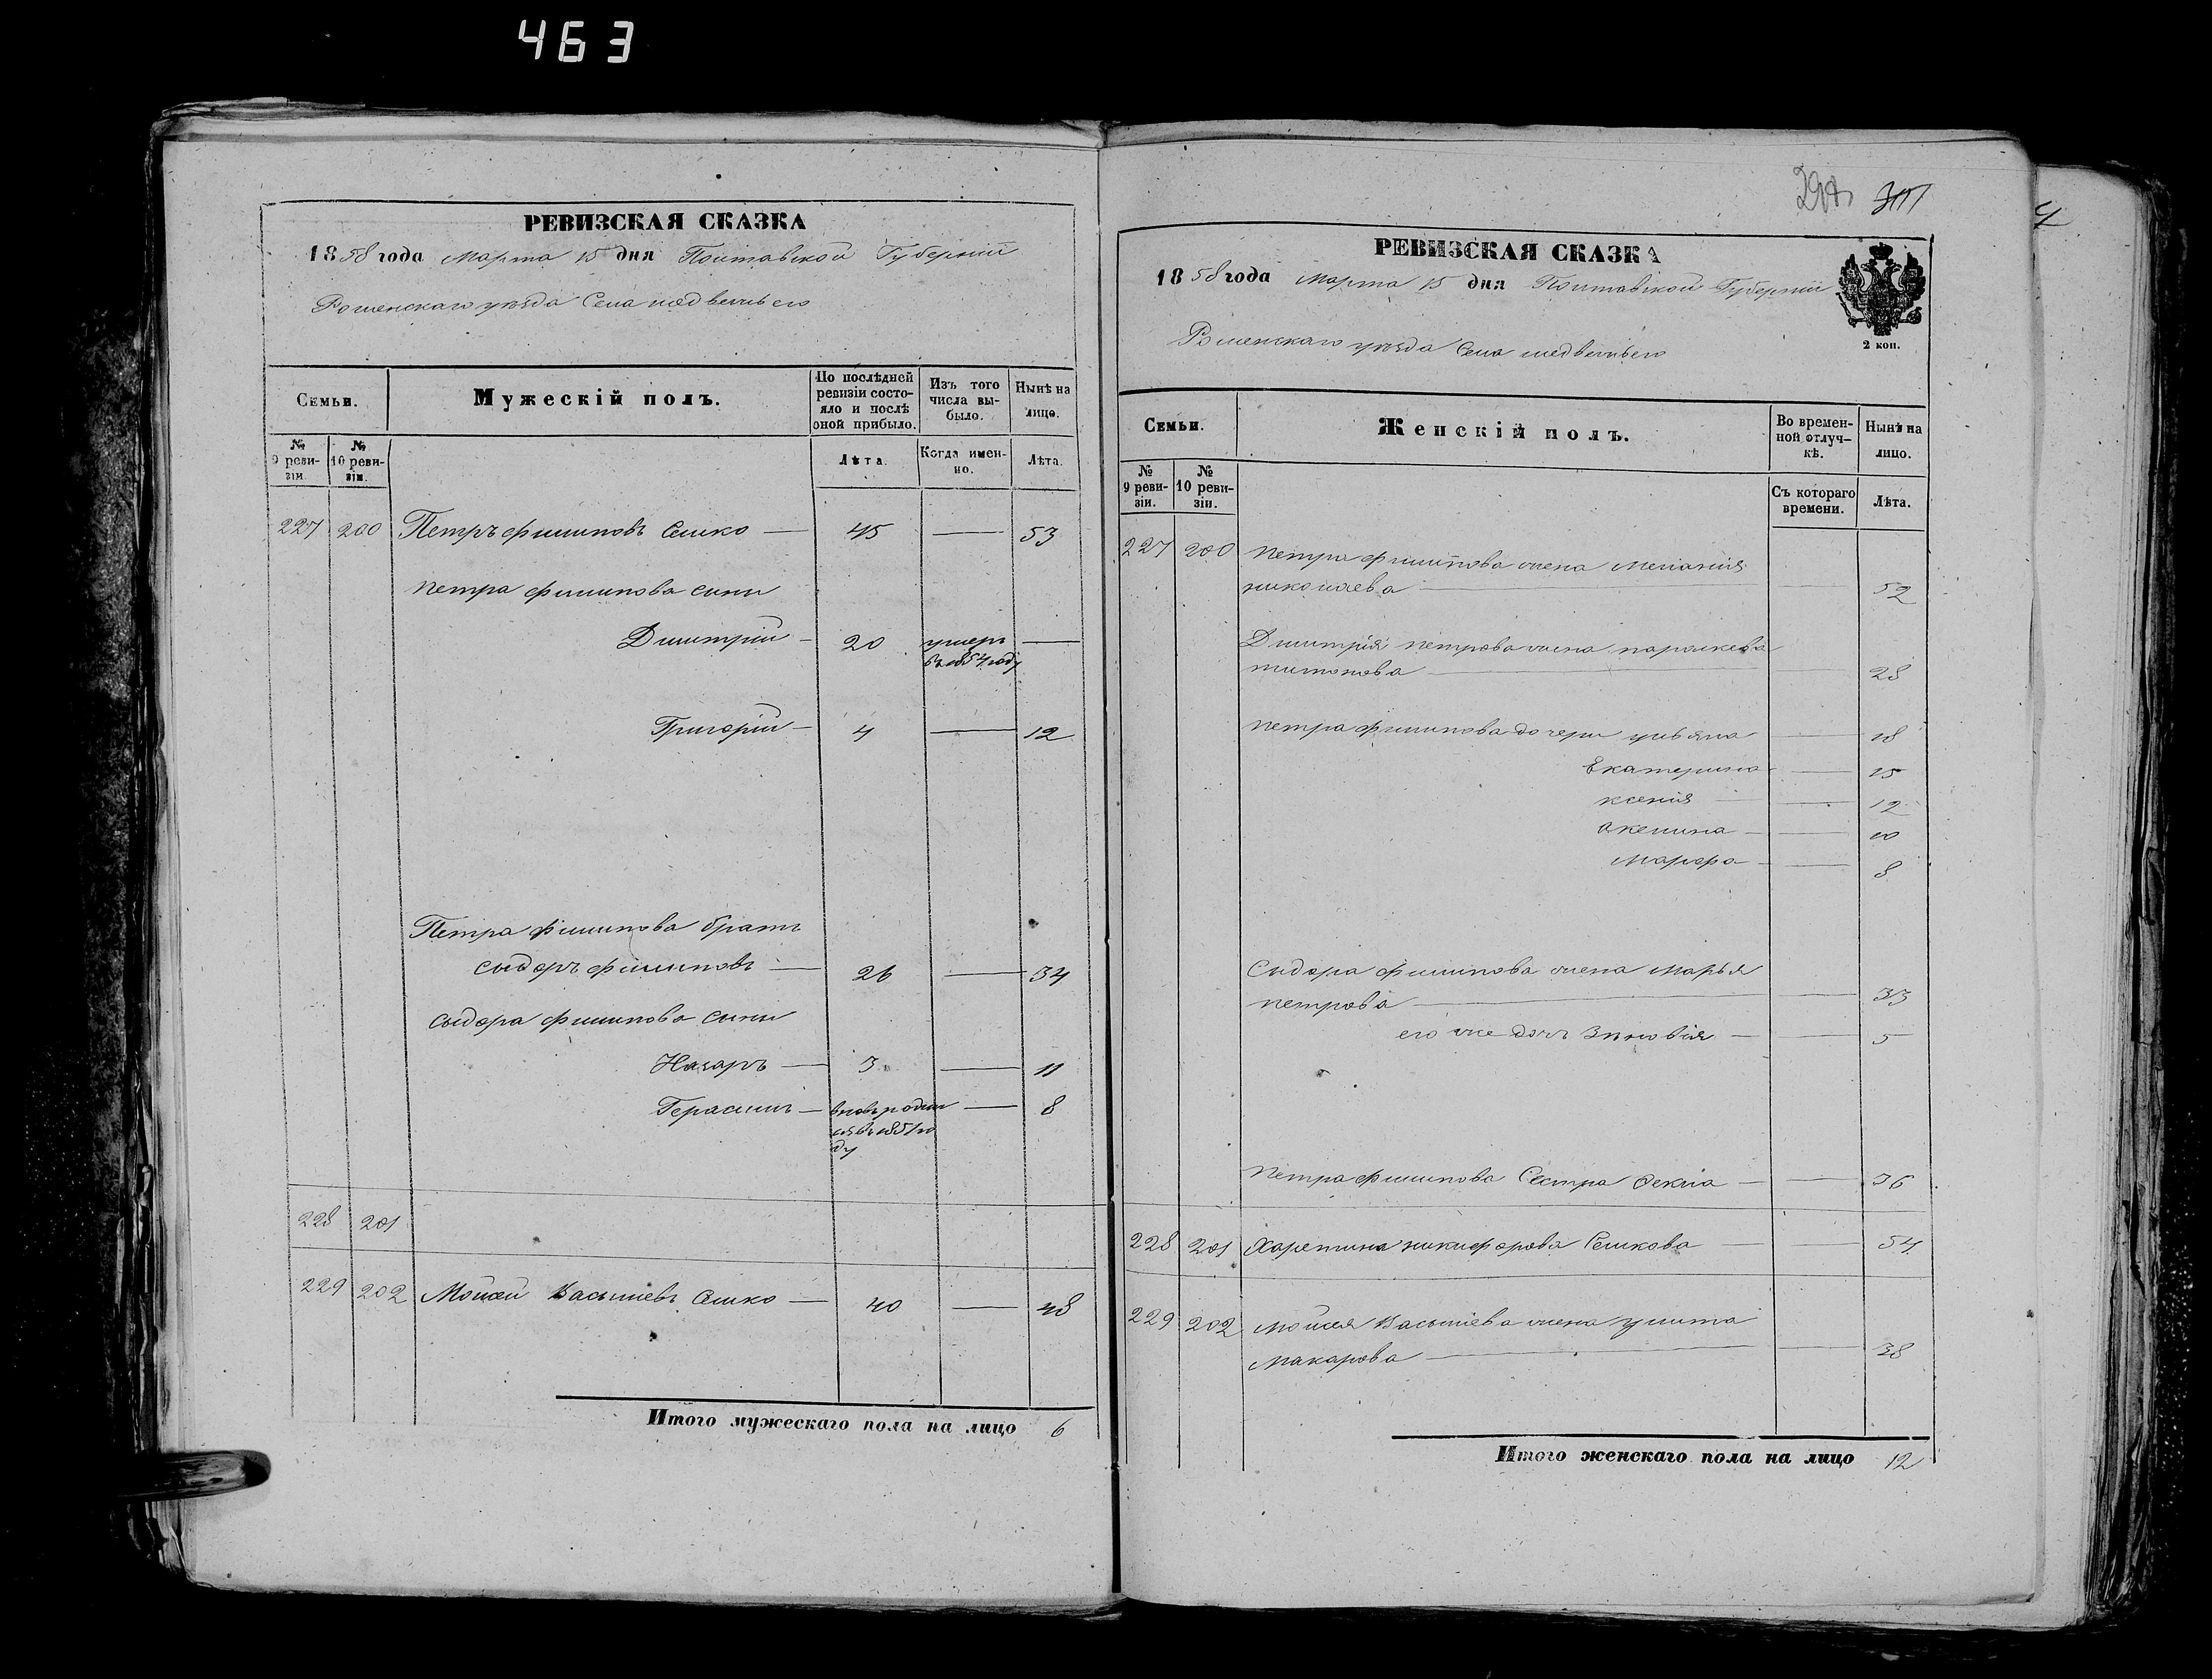 463
РЕВИЗСКАЯ СКАЗКА
1858 года Марта 15 дня Полтавской Губерніи
Роменскаго уѣзда Села медвежьего
Семьи.
Мужескій полъ.
По послѣдней ревизіи состояло и послѣ оной прибыло.
Изъ того числа выбыло.
Нынѣ на лицо.
№ 9 ревизіи.
№ 10 ревизіи.
Лѣта.
Когда именно.
Лѣта.
227 200 Петръ филиповъ Сешко — 45 — 53
петра филипова сыны
Димитрій — 20 умеръ —
въ 1854 году
Григорій — 4 — 12
Петра филипова братъ
сыдоръ филиповъ — 26 — 34
сыдора филипова сыны
Назаръ — 3 — 11
Герасимъ — вновь родил — 8
ся въ 1851 го
ду
228 201
229 202 Мойсей Васылиевъ Сешко — 40 — 48
Итого мужескаго пола на лицо 6
РЕВИЗСКАЯ СКАЗКА
1858 года марта 15 дня Полтавской Губерніи
2 коп.
Роменскаго уѣзда Села медвежьего
Семьи.
Женскій полъ.
Во временной отлучкѣ.
Нынѣ на лицо.
№ 9 ревизіи.
№ 10 ревизіи.
Съ котораго времени.
Лѣта.
227 200 петра филипова жена меланія
николаева — — 52
Димитрія петрова жена параскева
— — 28
петра филипова дочери ульяна — 18
Екатерина — 15
ксенія — — 12
акелина — — 10
марфа — — 8
Сыдора филипова жена марья
петрова — — 33
его же дочь Зиновія — — 5
петра филипова Сестра Фекла — — 36
228 201 Харетина никифорова Сешкова — — 54
229 202 мойсея Васылиева жена улита
макарова — — 38
Итого женскаго пола на лицо 12